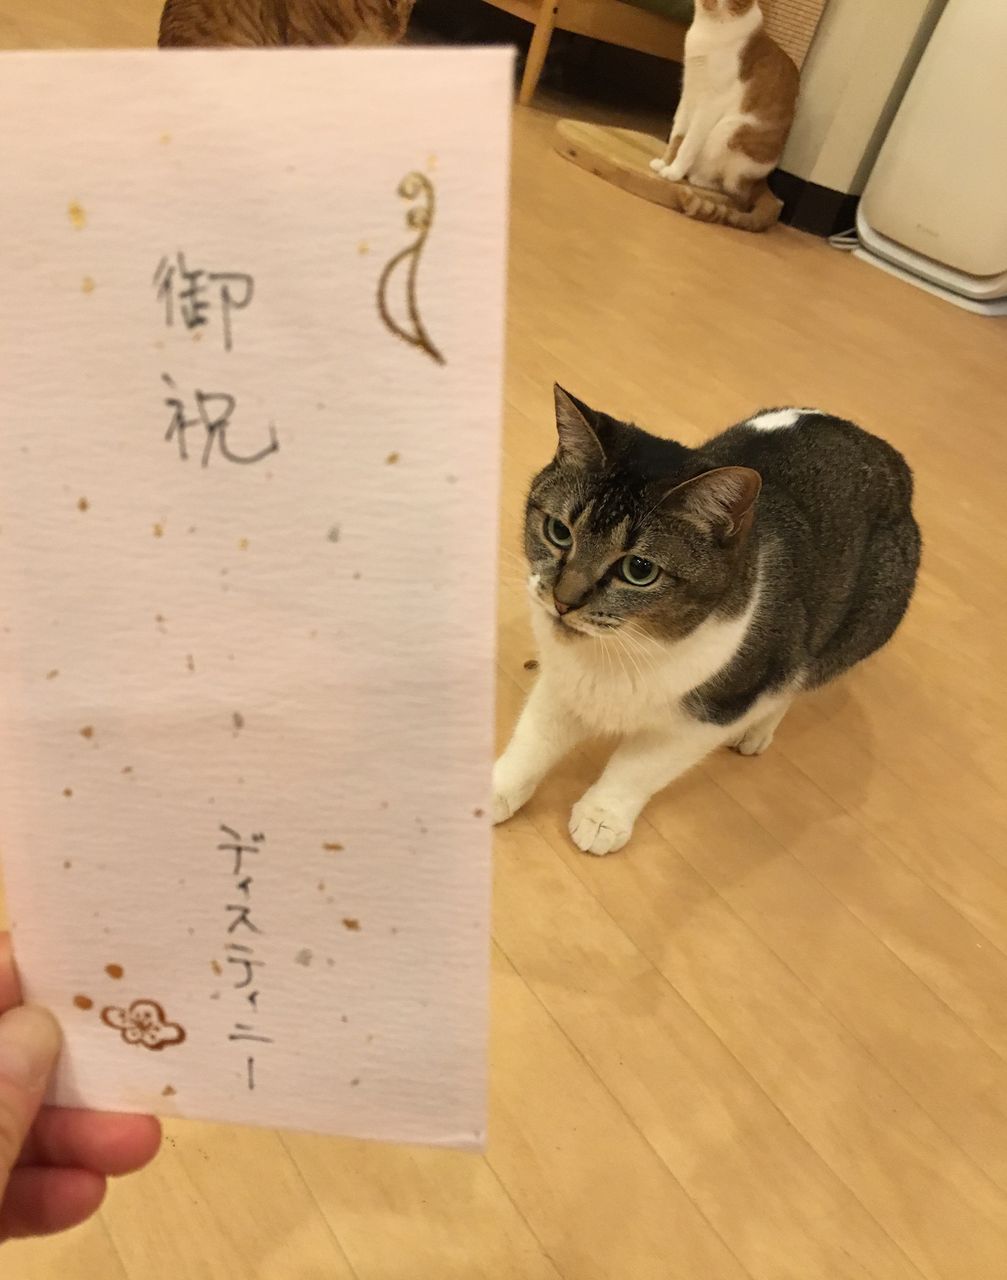 御祝
ディスティニー